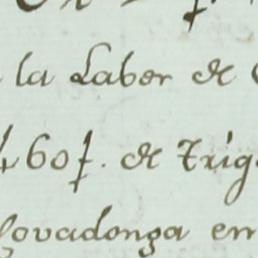 la Labor de
460f. de Trig
Covadonga en